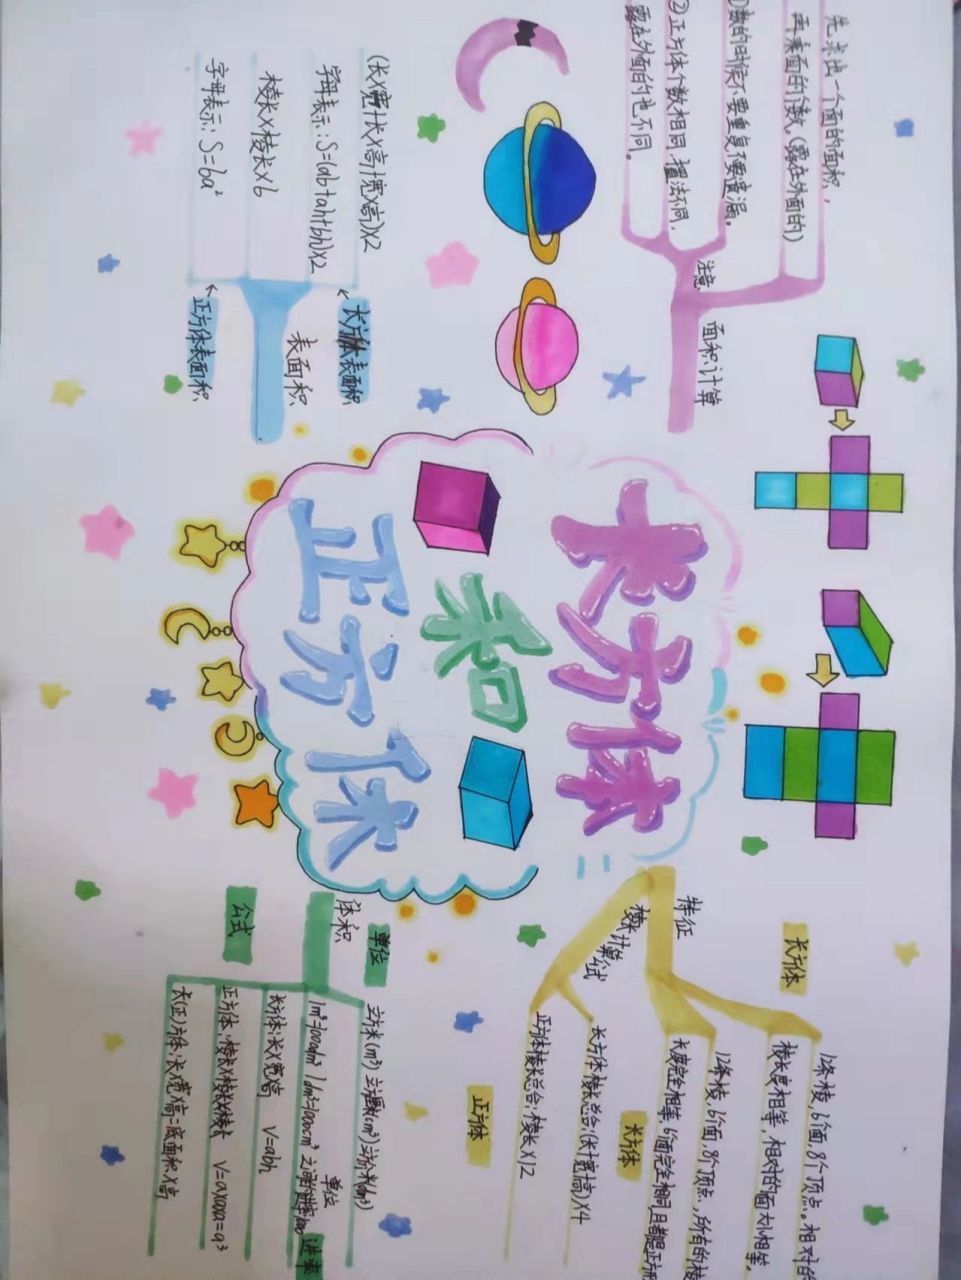 长方体
和
正方体
表面积
长方体表面积
(长×宽+长×高+宽×高)×2
字母表示:S=(ab+ah+bh)×2
正方体表面积
棱长×棱长×6
字母表示:S=6a²
面积计算
注意
先求出一个面的面积,
再乘面的个数。(露在外面的)
①数的时候不要重复不要遗漏。
②正方体个数相同,摆法不同,
露在外面的也不同。
特征
长方体
12条棱,6个面,8个顶点。相对的
棱长度相等,相对的面大小相等
12条棱,6个面,8个顶点,所有的棱
长度完全相等,6个面完全相同且都是正方形
棱长计算公式
长方体
长方体棱长总合:(长+宽+高)×4
正方体棱长总合:棱长×12
正方体
体积
单位
立方米(m³)
单位
进率
公式
长方体:长×宽×高 V=abh
正方体:棱长×棱长×棱长 V=a×a×a=a³
长(正)方体:长×宽×高=底面积×高